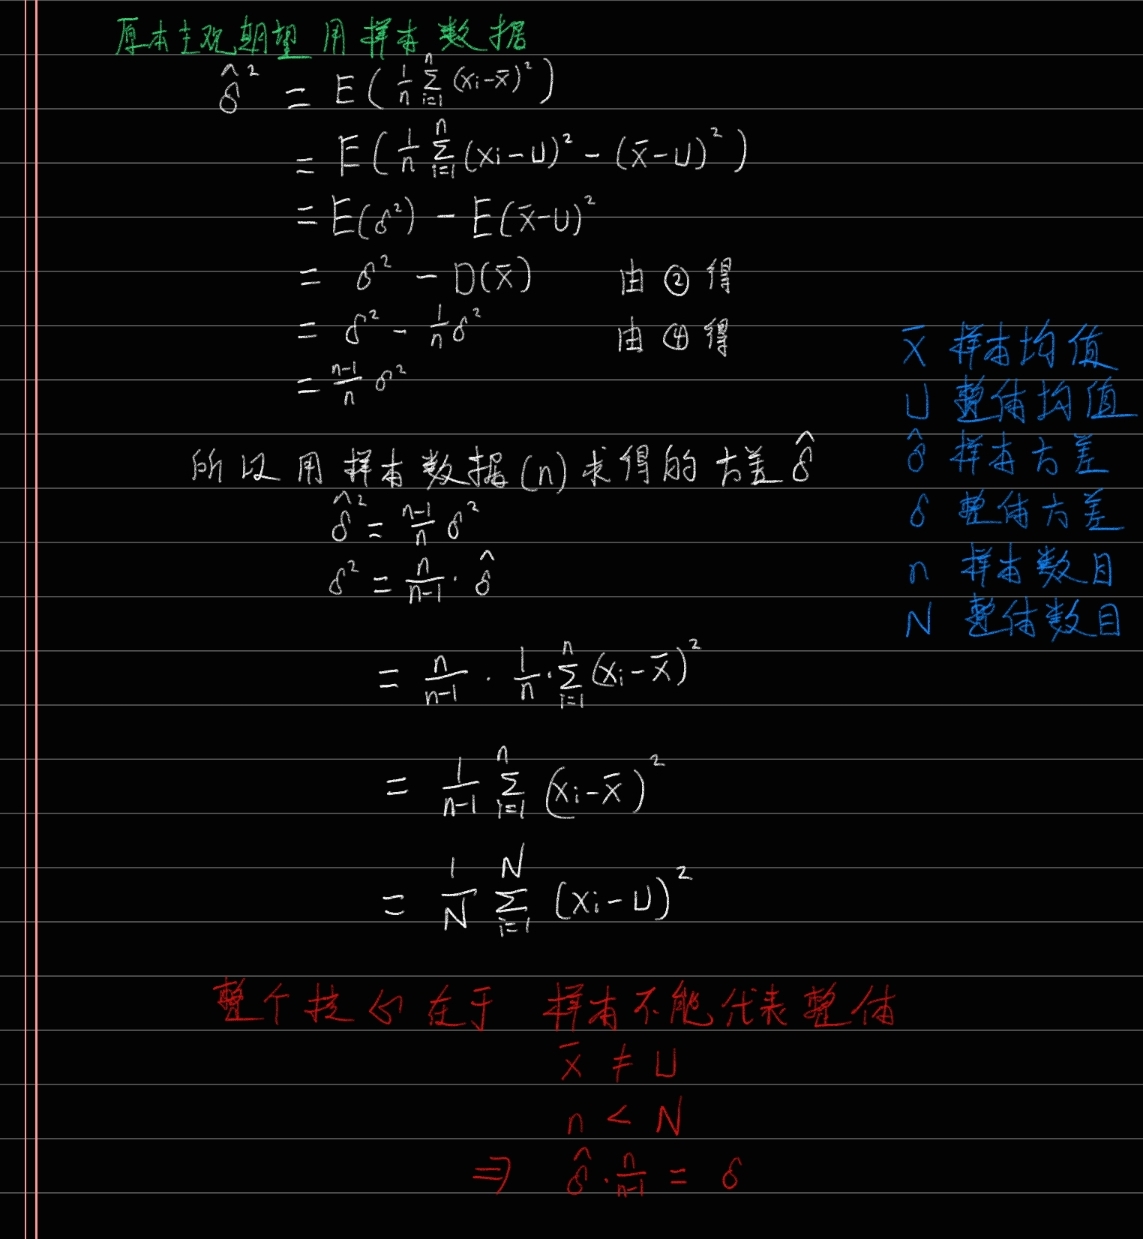 原本主观期望 用样本数据
δ̂² = E(1/n Σᵢ₌₁ⁿ (xi-x̄)²)
= E(1/n Σᵢ₌₁ⁿ (xi-U)² - (x̄-U)²)
= E(δ²) - E(x̄-U)²
= δ² - D(x̄) 由②得
= δ² - 1/n δ² 由④得
= n-1/n δ²
x̄ 样本均值
U 整体均值
δ̂ 样本方差
δ 整体方差
n 样本数目
N 整体数目
所以用样本数据(n)求得的方差δ̂
δ̂² = n-1/n δ²
δ² = n/n-1 · δ̂
= n/n-1 · 1/n · Σᵢ₌₁ⁿ (xi-x̄)²
= 1/n-1 Σᵢ₌₁ⁿ (xi-x̄)²
= 1/N Σᵢ₌₁ᴺ (xi-U)²
整个核心在于 样本不能代表整体
x̄ ≠ U
n < N
⇒ δ̂ · n/n-1 = δ